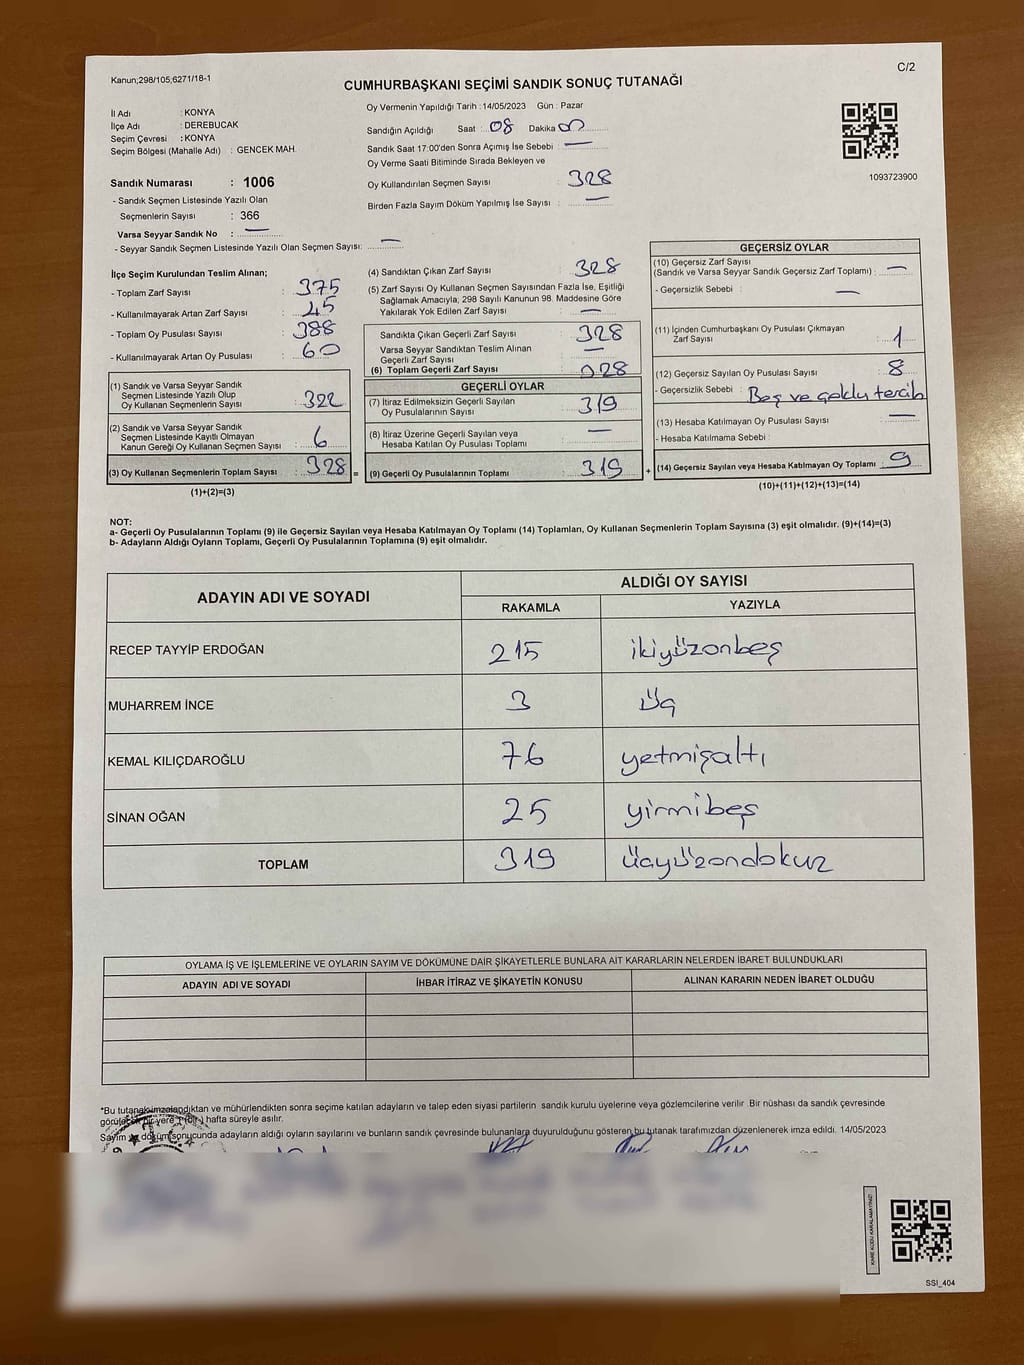 Kanun;298/105,6271/18-1
C/2
CUMHURBAŞKANI SEÇİMİ SANDIK SONUÇ TUTANAĞI
İl Adı : KONYA
İlçe Adı : DEREBUCAK
Seçim Çevresi : KONYA
Seçim Bölgesi (Mahalle Adı) : GENCEK MAH.
Oy Vermenin Yapıldığı Tarih : 14/05/2023 Gün : Pazar
Sandığın Açıldığı Saat : 08 Dakika 00
Sandık Saat 17:00'den Sonra Açmış İse Sebebi : —
Oy Verme Saati Bitiminde Sırada Bekleyen ve
Oy Kullandırılan Seçmen Sayısı : 328
Birden Fazla Sayım Döküm Yapılmış İse Sayısı : —
1093723900
Sandık Numarası : 1006
- Sandık Seçmen Listesinde Yazılı Olan
Seçmenlerin Sayısı : 366
Varsa Seyyar Sandık No : —
- Seyyar Sandık Seçmen Listesinde Yazılı Olan Seçmen Sayısı: —
İlçe Seçim Kurulundan Teslim Alınan;
- Toplam Zarf Sayısı : 375
- Kullanılmayarak Artan Zarf Sayısı : 45
- Toplam Oy Pusulası Sayısı : 388
- Kullanılmayarak Artan Oy Pusulası : 60
(1) Sandık ve Varsa Seyyar Sandık
Seçmen Listesinde Yazılı Olup
Oy Kullanan Seçmenlerin Sayısı : 322
(2) Sandık ve Varsa Seyyar Sandık
Seçmen Listesinde Kayıtlı Olmayan
Kanun Gereği Oy Kullanan Seçmen Sayısı : 6
(3) Oy Kullanan Seçmenlerin Toplam Sayısı : 328 =
(1)+(2)=(3)
(4) Sandıktan Çıkan Zarf Sayısı : 328
(5) Zarf Sayısı Oy Kullanan Seçmen Sayısından Fazla İse, Eşitliği
Sağlamak Amacıyla; 298 Sayılı Kanunun 98. Maddesine Göre
Yakılarak Yok Edilen Zarf Sayısı : —
Sandıkta Çıkan Geçerli Zarf Sayısı : 328
Varsa Seyyar Sandıktan Teslim Alınan
Geçerli Zarf Sayısı : —
(6) Toplam Geçerli Zarf Sayısı : 328
GEÇERLİ OYLAR
(7) İtiraz Edilmeksizin Geçerli Sayılan
Oy Pusulalarının Sayısı : 319
(8) İtiraz Üzerine Geçerli Sayılan veya
Hesaba Katılan Oy Pusulalarının Sayısı : —
(9) Geçerli Oy Pusulalarının Toplamı : 319 +
GEÇERSİZ OYLAR
(10) Geçersiz Zarf Sayısı
(Sandık ve Varsa Seyyar Sandık Geçersiz Zarf Toplamı) : —
- Geçersizlik Sebebi : —
(11) İçinden Cumhurbaşkanı Oy Pusulası Çıkmayan
Zarf Sayısı : 1
(12) Geçersiz Sayılan Oy Pusulası Sayısı : 8
- Geçersizlik Sebebi : Boş ve çoklu tercih
(13) Hesaba Katılmayan Oy Pusulası Sayısı : —
- Hesaba Katılmama Sebebi :
(14) Geçersiz Sayılan veya Hesaba Katılmayan Oy Toplamı : 9
(10)+(11)+(12)+(13)=(14)
NOT:
a- Geçerli Oy Pusulalarının Toplamı (9) ile Geçersiz Sayılan veya Hesaba Katılmayan Oy Toplamı (14) Toplamları, Oy Kullanan Seçmenlerin Toplam Sayısına (3) eşit olmalıdır. (9)+(14)=(3)
b- Adayların Aldığı Oyların Toplamı, Geçerli Oy Pusulalarının Toplamına (9) eşit olmalıdır.
ADAYIN ADI VE SOYADI
ALDIĞI OY SAYISI
RAKAMLA YAZIYLA
RECEP TAYYİP ERDOĞAN 215 ikiyüzonbeş
MUHARREM İNCE 3 üç
KEMAL KILIÇDAROĞLU 76 yetmişaltı
SİNAN OĞAN 25 yirmibeş
TOPLAM 319 üçyüzondokuz
OYLAMA İŞ VE İŞLEMLERİNE VE OYLARIN SAYIM VE DÖKÜMÜNE DAİR ŞİKAYETLERLE BUNLARA AİT KARARLARIN NELERDEN İBARET BULUNDUKLARI
ADAYIN ADI VE SOYADI İHBAR İTİRAZ VE ŞİKAYETİN KONUSU ALINAN KARARIN NEDEN İBARET OLDUĞU
*Bu tutanak imzalandıktan ve mühürlendikten sonra seçime katılan adayların ve talep eden siyasi partilerin sandık kurulu üyelerine veya gözlemcilerine verilir. Bir nüshası da sandık çevresinde
görülecek bir yere 1 (bir) hafta süreyle asılır.
Sayım ve döküm sonucunda adayların aldığı oyların sayılarını ve bunların sandık çevresinde bulunanlara duyurulduğunu gösteren bu tutanak tarafımızdan düzenlenerek imza edildi. 14/05/2023
T.C.
KARE KODU KARALAMAYINIZ!
SSI_404